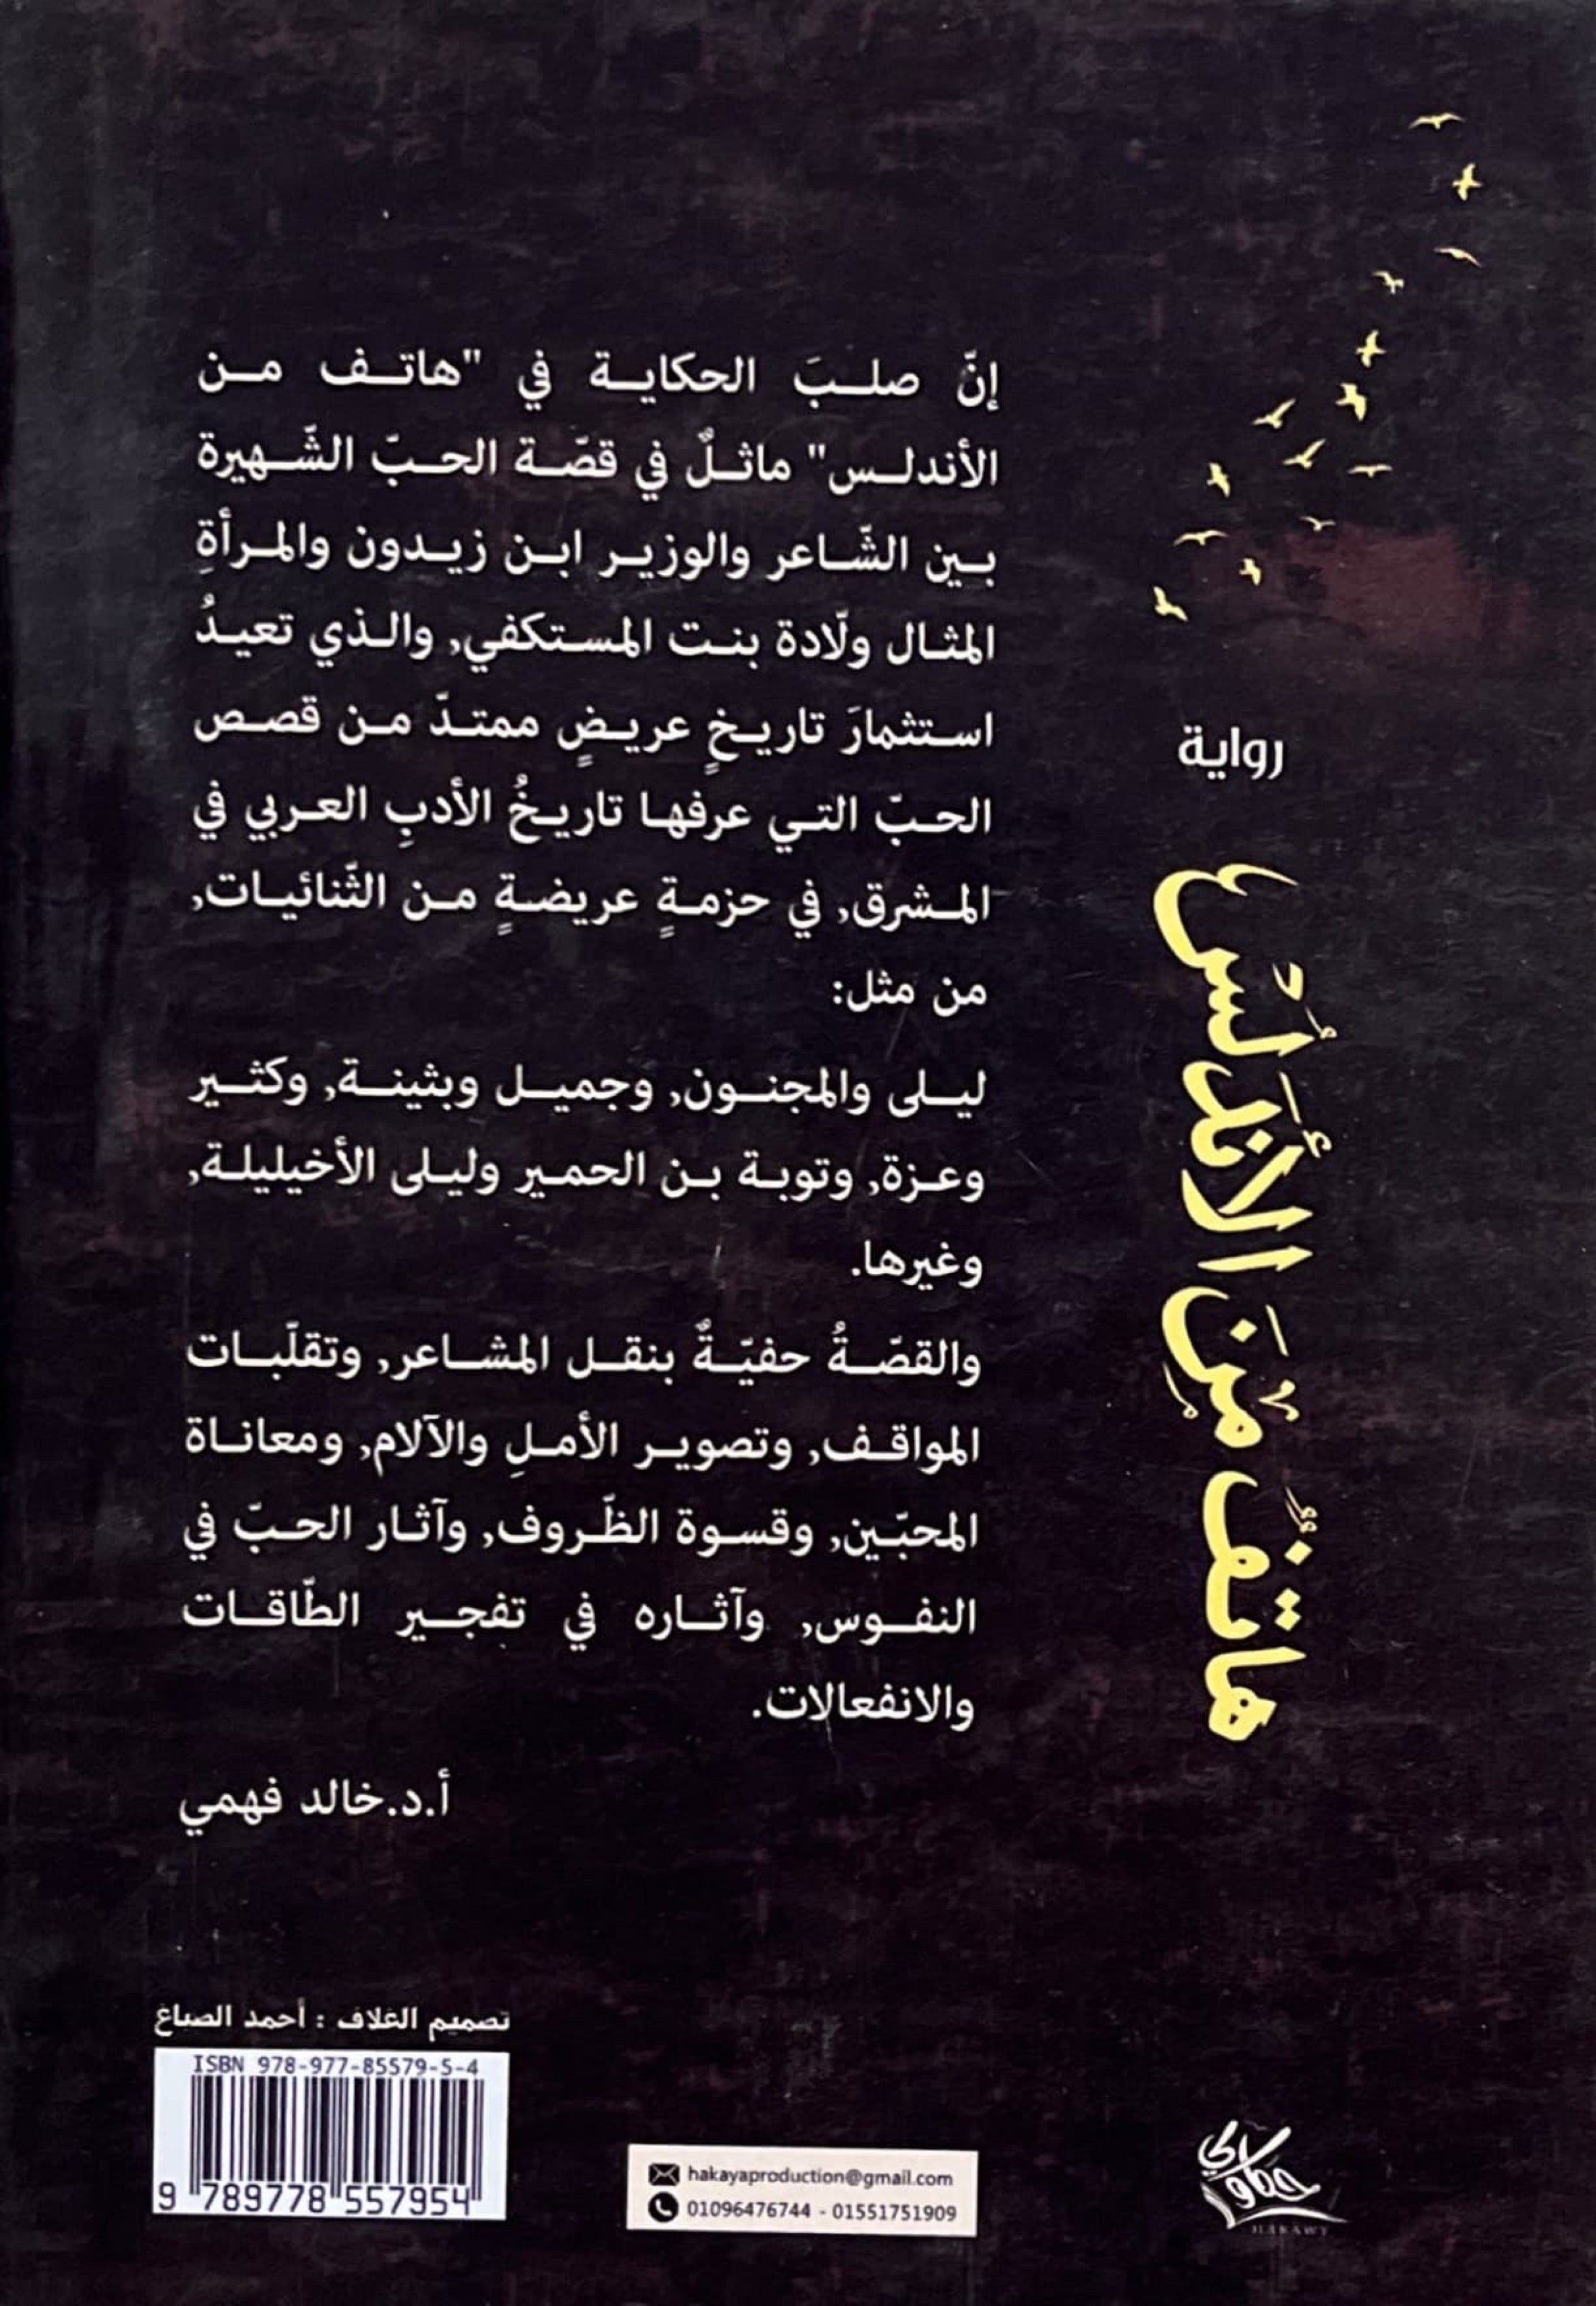 رواية
هَاتِفٌ مِنَ الأَنْدَلُسِ
إنّ صلبَ الحكاية في "هاتف من
الأندلس" ماثلٌ في قصّة الحبّ الشّهيرة
بين الشّاعر والوزير ابن زيدون والمرأةِ
المثال ولّادة بنت المستكفي, والذي تعيدُ
استثمارَ تاريخٍ عريضٍ ممتدّ من قصص
الحبّ التي عرفها تاريخُ الأدبِ العربي في
المشرق, في حزمةٍ عريضةٍ من الثّنائيات,
من مثل:
ليلى والمجنون, وجميل وبثينة, وكثير
وعزة, وتوبة بن الحمير وليلى الأخيليلة,
وغيرها.
والقصّةُ حفيّةٌ بنقل المشاعر, وتقلّبات
المواقف, وتصوير الأملِ والآلام, ومعاناة
المحبّين, وقسوة الظّروف, وآثار الحبّ في
النفوس, وآثاره في تفجير الطّاقات
والانفعالات.
أ.د.خالد فهمي
تصميم الغلاف : أحمد الصباغ
ISBN 978-977-85579-5-4
9 789778 557954
hakayaproduction@gmail.com
01096476744 - 01551751909
حكاوي
HAKAWY